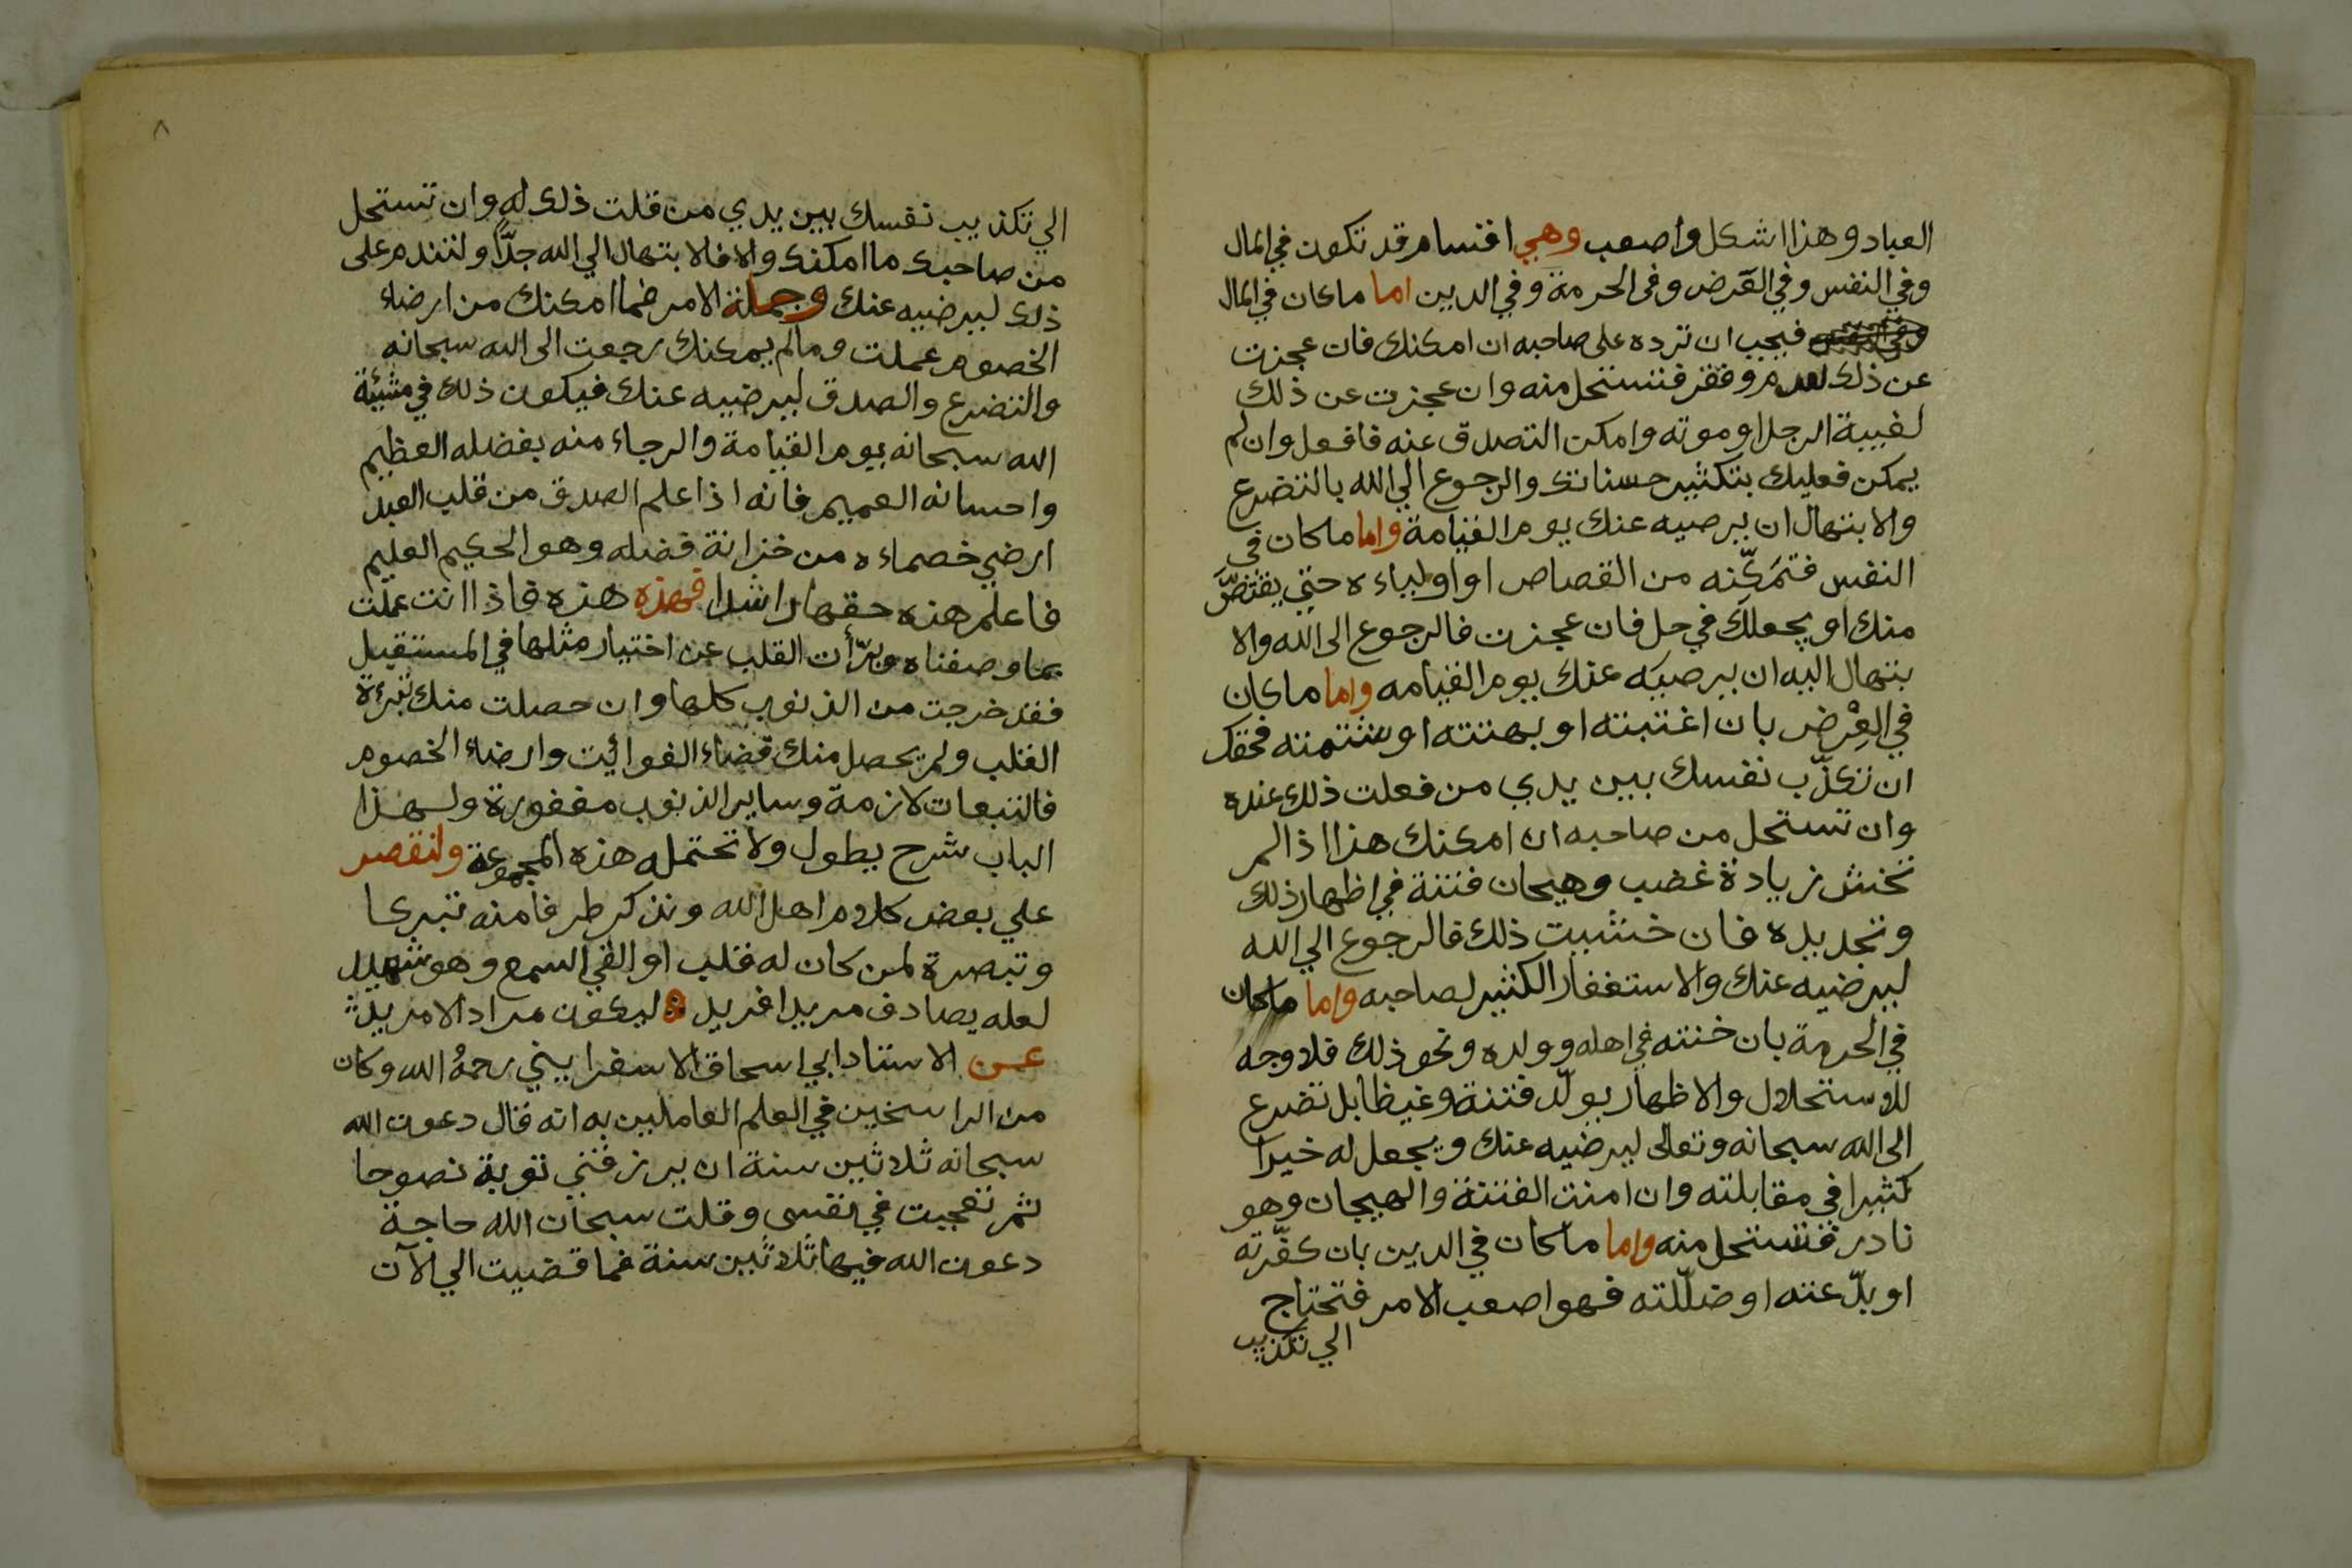 العباد وهذا اشكل واصعب وهي اقسام قد تكون في المال
وفي النفس وفي العرض وفي الحرمة وفي الدين اما ماكان في المال
فيجب ان ترده على صاحبه ان امكنك فان عجزت
عن ذلك لعدم وفقر فتستحل منه وان عجزت عن ذلك
لغيبة الرجل او موته وامكن التصدق عنه فافعل وان لم
يمكن فعليك بتكثير حسناتك والرجوع الي الله بالتضرع
والابتهال ان يرضيه عنك يوم القيامة واما ماكان في
النفس فتمكّنه من القصاص او اولياءه حتي يقتصّ
منك او يجعلك في حل فان عجزت فالرجوع الى الله والا
بتهال اليه ان يرضيه عنك يوم القيامه واما ماكان
في العِرْض بان اغتبته او بهتته او شتمته فحقك
ان تكذّب نفسك بين يدي من فعلت ذلك عنده
وان تستحل من صاحبه ان امكنك هذا اذا لم
تخش زيادة غضب وهيجان فتنة في اظهار ذلك
وتجديده فان خشيت ذلك فالرجوع الي الله
ليرضيه عنك والاستغفار الكثير لصاحبه واما ماكان
في الحرمة بان خنته في اهله وولده ونحو ذلك فلا وجه
للاستحلال والاظهار يولّد فتنة وغيظا بل تضرع
الى الله سبحانه وتعالى ليرضيه عنك ويجعل له خيرا
كثيرا في مقابلته وان امنت الفتنة والهيجان وهو
نادر فتستحل منه واما ماكان في الدين بان كفّرته
او بدّعته او ضلّلته فهو اصعب الامر فتحتاج
الي تكذيب
٨
الي تكذيب نفسك بين يدي من قلت ذلك له وان تستحل
من صاحبك ما امكنك والا فالابتهال الي الله جدّا ولتندم على
ذلك ليرضيه عنك وجملة الامر فما امكنك من ارضاء
الخصوم عملت ومالم يمكنك رجعت الى الله سبحانه
والتضرع والصدق ليرضيه عنك فيكون ذلك في مشيئة
الله سبحانه يوم القيامة والرجاء منه بفضله العظيم
واحسانه العميم فانه اذا علم الصدق من قلب العبد
ارضي خصماءه من خزانة فضله وهو الحكيم العليم
فاعلم هذه حقها راشدا فهذه هذه فاذا انت عملت
بما وصفناه وبرّأت القلب عن اختيار مثلها في المستقبل
فقد خرجت من الذنوب كلها وان حصلت منك تبرءة
القلب ولم يحصل منك قضاء الفوائيت وارضاء الخصوم
فالتبعات لازمة وساير الذنوب مغفورة ولهذا
الباب شرح يطول ولا تحتمله هذه المجموعة ولنقصر
علي بعض كلام اهل الله ونذكر طرفا منه تبركا
وتبصرة لمن كان له قلب او القي السمع وهو شهيد
لعله يصادف مريدا فريد ليكون مراد الامريد
عن الاستاد ابي اسحاق الاسفرايني رحمهُ الله وكان
من الراسخين في العلم العاملين به انه قال دعوت الله
سبحانه ثلاثين سنة ان يرزقني توبة نصوحا
ثم تعجبت في نفسى وقلت سبحان الله حاجة
دعوت الله فيها ثلاثين سنة فما قضيت الي الآن